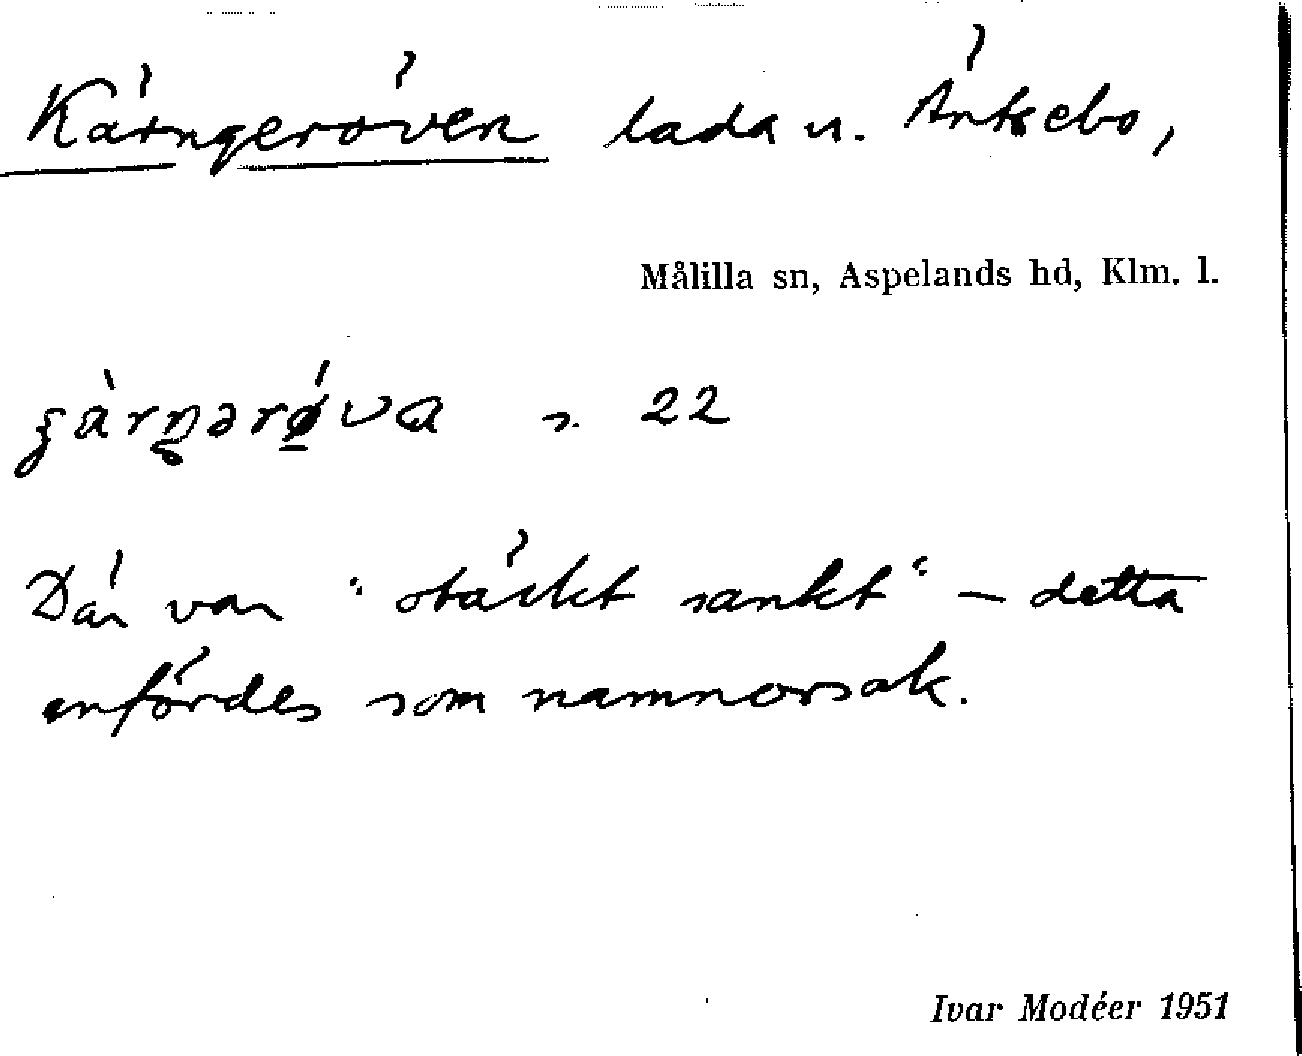 Kärngeröven lada u. Äntsebo,
Målilla sn, Aspelands hd, Klm. l.
s. 22
Där var "stäckt sankt" — detta
anfördes som namnorsak.
Ivar Modéer 1951